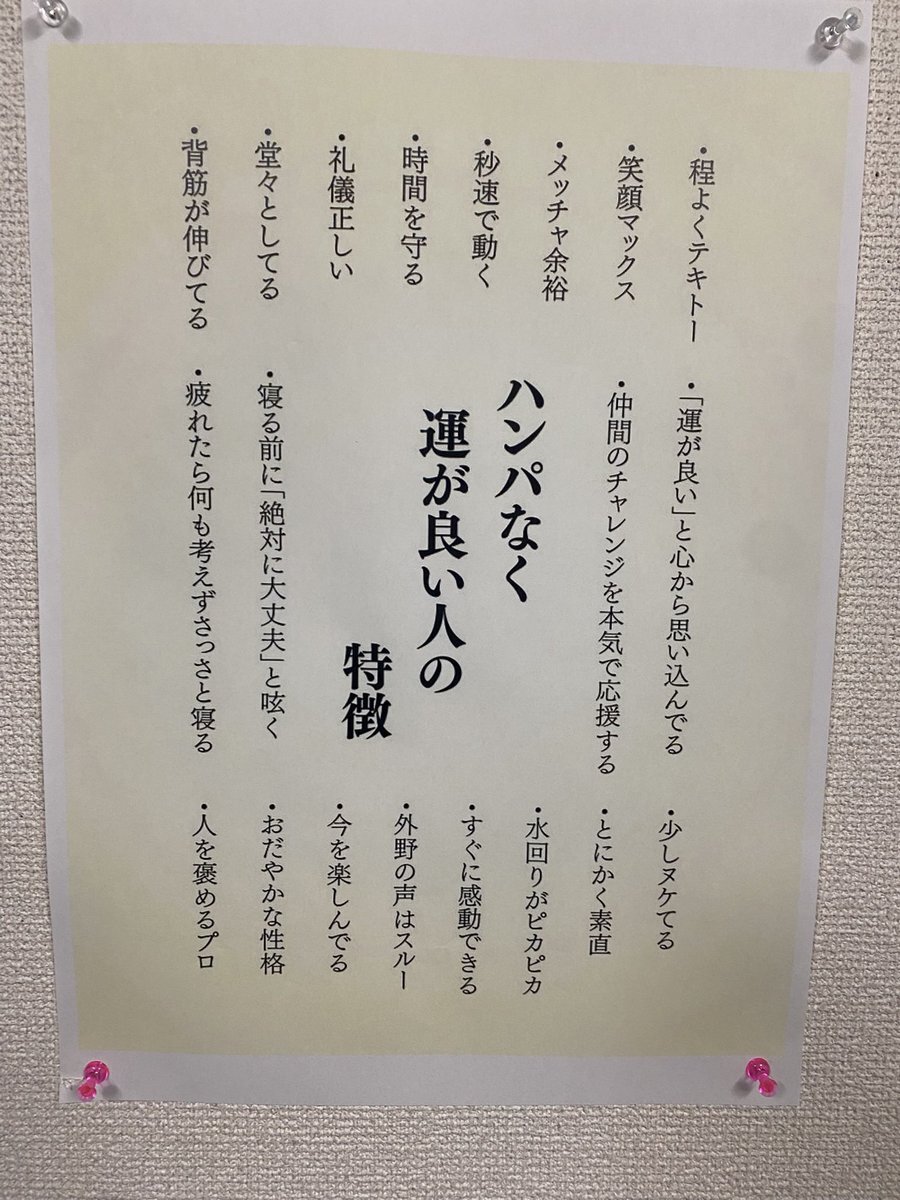 ・程よくテキトー
・笑顔マックス
・メッチャ余裕
・秒速で動く
・時間を守る
・礼儀正しい
・堂々としてる
・背筋が伸びてる
・「運が良い」と心から思い込んでる
・仲間のチャレンジを本気で応援する
ハンパなく
運が良い人の
特徴
・寝る前に「絶対に大丈夫」と呟く
・疲れたら何も考えずさっさと寝る
・少しヌケてる
・とにかく素直
・水回りがピカピカ
・すぐに感動できる
・外野の声はスルー
・今を楽しんでる
・おだやかな性格
・人を褒めるプロ